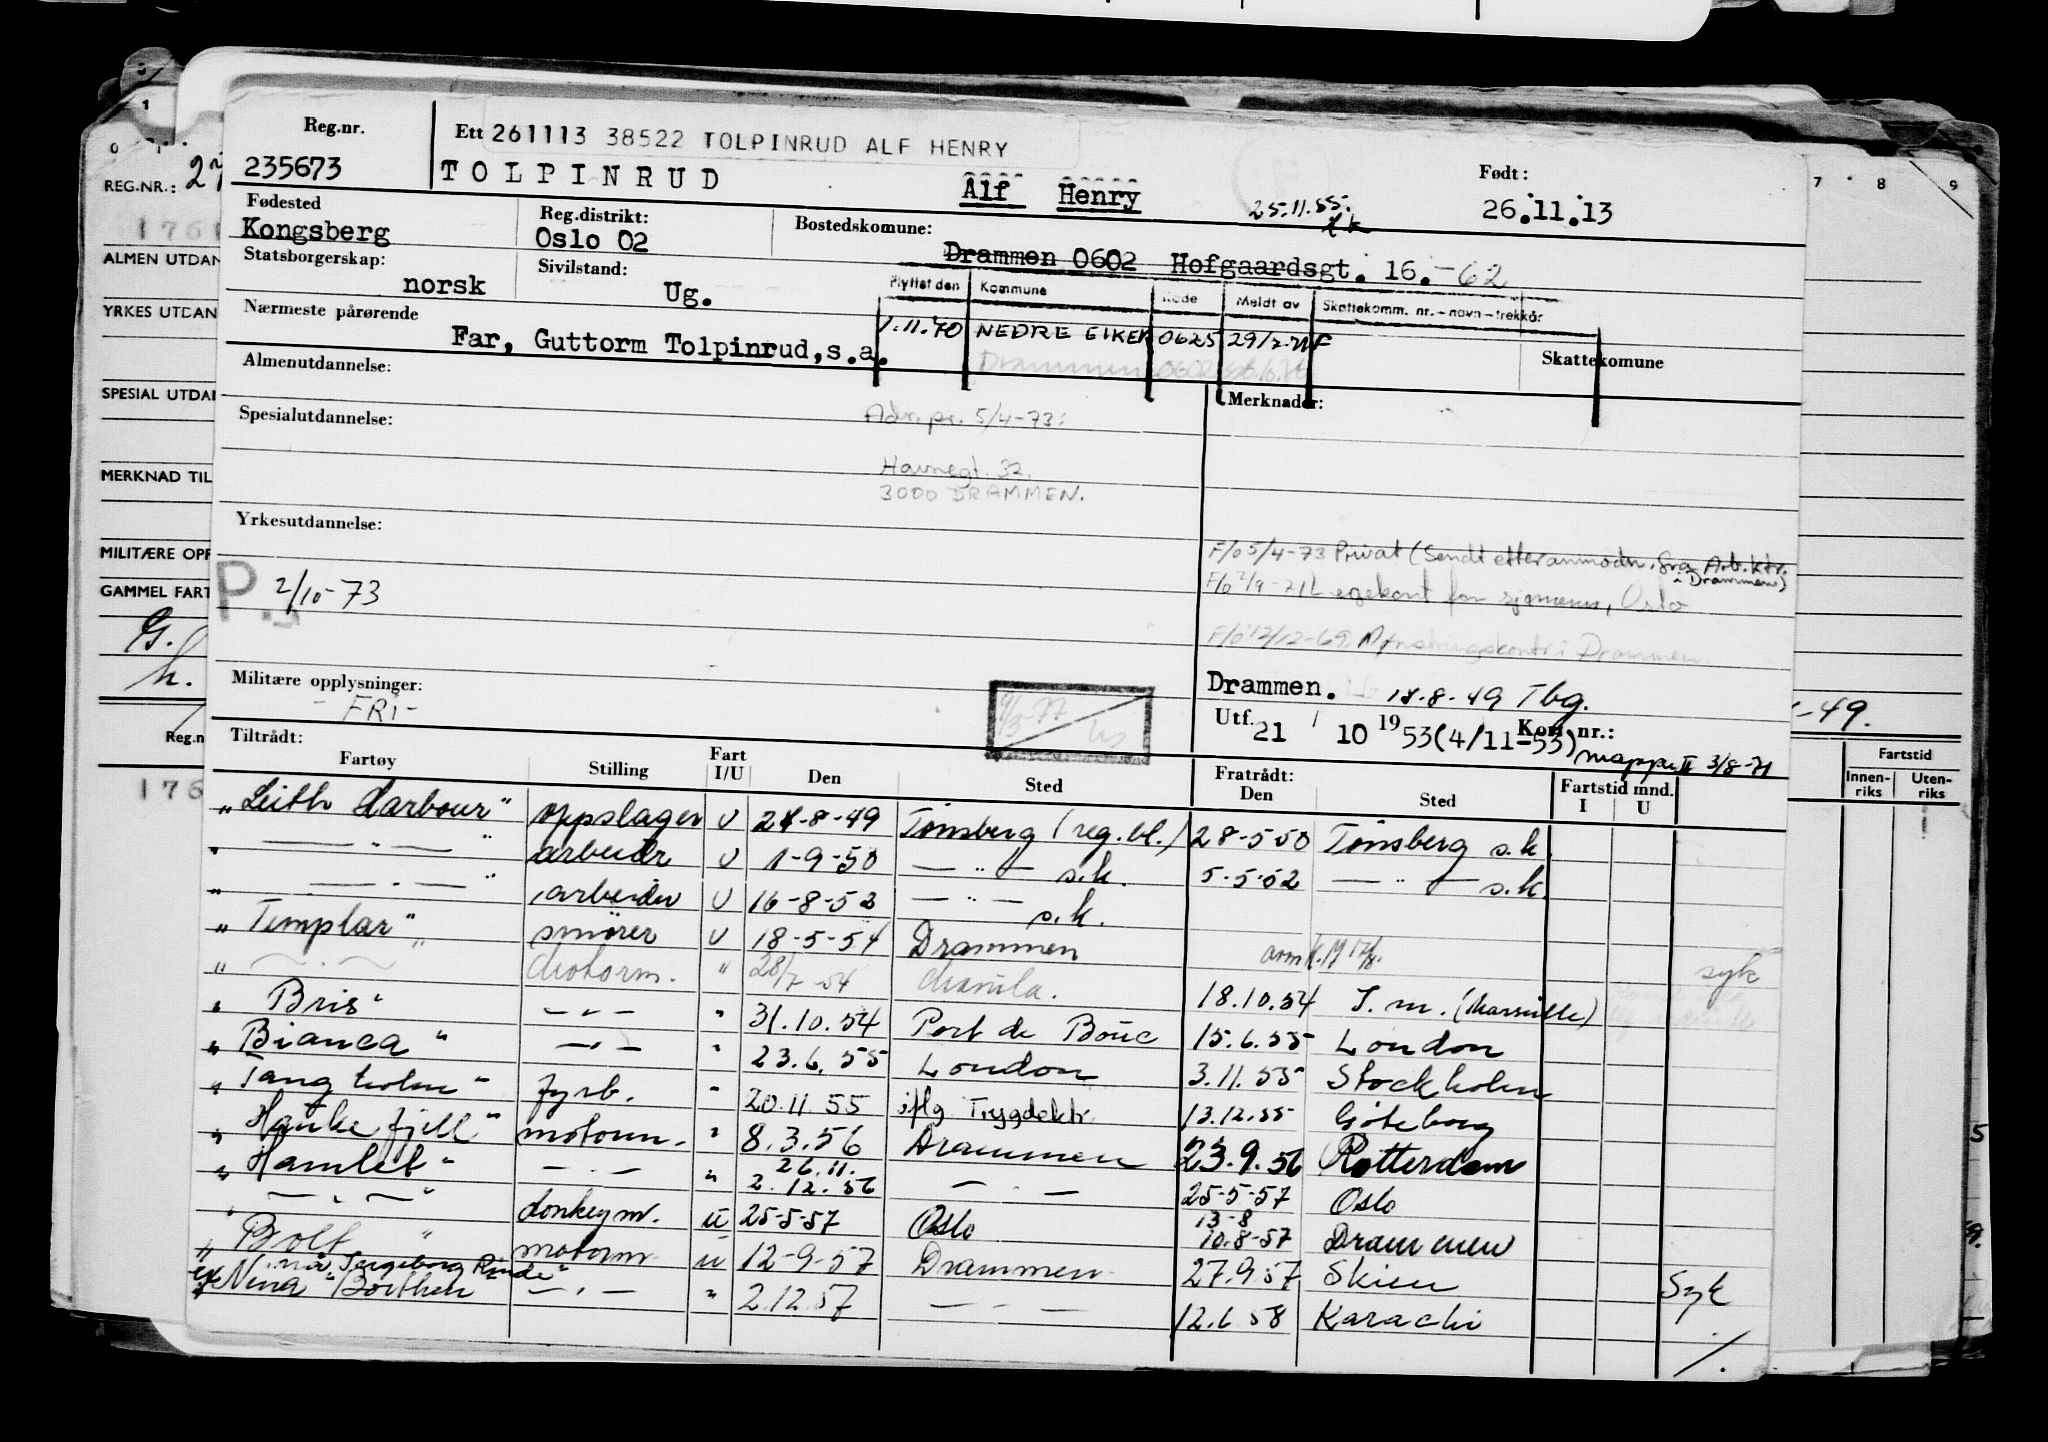 Reg.nr. Ett 261113 38522 TOLPINRUD ALF HENRY
235673 TOLPINRUD Alf Henry Født: 26.11.13
25.11.55.
Fødested Kongsberg Reg.distrikt: Oslo 02 Bostedskomune: Drammen 0602 Hofgaardsgt. 16. -62
Statsborgerskap: norsk Sivilstand: Ug.
Flyttet den Kommune Kode Meldt av Skattekomm. nr. - navn - trekkår
1.11.70 NEDRE EIKER 0625
Drammen 0602
Nærmeste pårørende Far, Guttorm Tolpinrud, s.a. Skattekomune
Almenutdannelse: Merknader:
Spesialutdannelse: Adr. pr. 5/4-73:
Havnegt. 32.
3000 DRAMMEN.
Yrkesutdannelse:
F/o 5/4-73 Privat (Sendt etter anmodn. fra Arb.ktr. i Drammen)
F/o 2/9-71 Legekont for sjømenn, Oslo
F/o 12/12-69. Mønstringskontr i Drammen.
P. 2/10-73
Militære opplysninger: -FRI-
Drammen. 18.8.49 Tbg.
Utf. 21 / 10 1953 (4/11-53) Kort nr.: mappe II 3/8-71
Tiltrådt: Fratrådt: Fartstid mnd.
Fartøy Stilling Fart I/U Den Sted Den Sted I U
"Leith Harbour" oppslager U 24-8-49 Tønsberg (reg.bl.) 28-5-50 Tønsberg s.k.
" — " — " arbeider U 1-9-50 — " — s.k. 5-5-52 — " — s.k.
" — " — " arbeider U 16-8-52 — " — s.k.
"Templar" smører U 18-5-54 Drammen
" — " — Motorm. " 28/7-54 Manila. 18.10.54 S.m. (Marseille) syk
"Bris" — " — " 31.10.54 Port de Bouc 15.6.55 London
"Bianca" — " — " 23.6.55 London 3.11.55 Stockholm
"Tangholm" fyrb. " 20.11 55 iflg Trygdektr. 13.12.55 Göteborg
"Haukefjell" motorm. " 8.3.56 Drammen 23.9.56 Rotterdam
"Hamlet" — " — " 26.11. 2.12.56 — " — 25-5-57 Oslo
" — " — " donkeym. U 25-5-57 Oslo 13-8 10.8-57 Drammen
"Bolt" motorm U 12-9-57 Drammen 27.9.57 Skien Syk
nå "Ingeborg
ex "Nina Borthen" — " — " 2.12.57 — " — 12.6 58 Karachi
./.
0 1 7 8 9
REG.NR.:
ALMEN UTDAN
YRKES UTDAN
SPESIAL UTDAN
MERKNAD TIL
MILITÆRE OPP
GAMMEL FART
Reg.n
176
-49.
Fartstid
Innen-riks Uten-riks